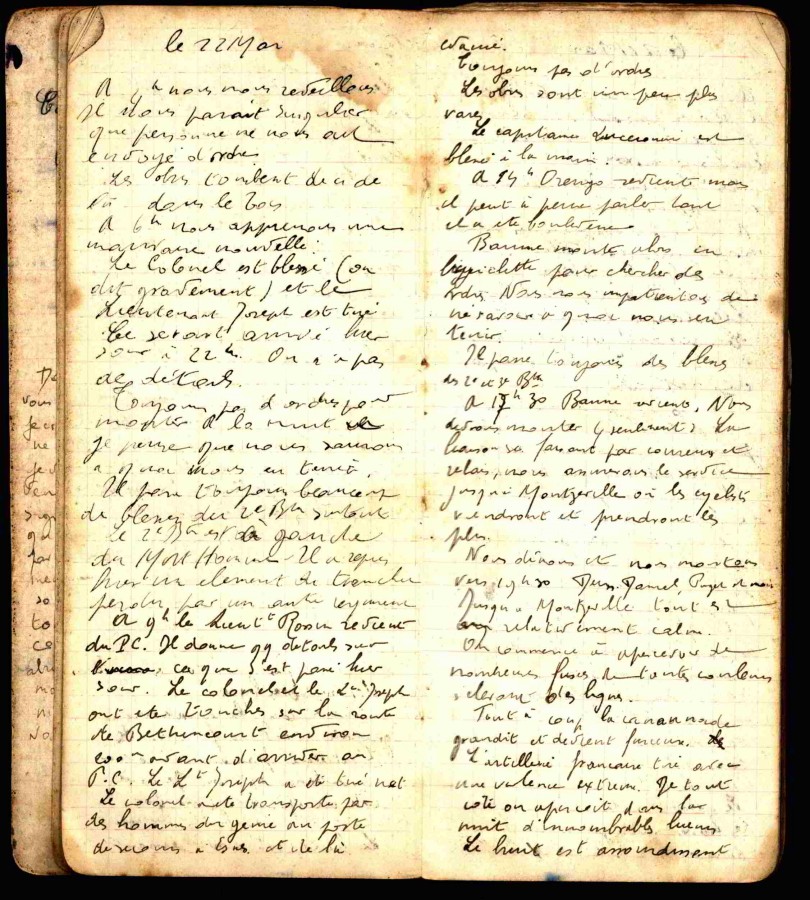 le 22 Mai
A 4h nous nous reveillons
Il nous parait singulier
que personne ne nous ait
envoyé d'ordre
Les obus tombent deci de
là dans le bois
A 6h nous apprenons une
mauvaise nouvelle:
Le Colonel est blessé (on
dit gravement) et le
Lieutenant Joseph est tué
Ce serait arrivé hier
soir à 22h. On n'a pas
de détails.
Toujours pas d'ordres pour
monter à la nuit
je pense que nous saurons
a quoi nous en tenir.
Il passe toujours beaucoup
de blessés du 2e Bon surtout
Le 2e Bon est à gauche
du Mort Homme. Il a repris
hier un element de tranchée
perdu par un autre regiment
A 9h le Lieutt Rosin revient
du P.C. Il donne qq details sur
ce que s'est passé hier
soir. Le colonel et le Lt Joseph
ont ete touches sur la route
de Bethincourt environ
avant d'arriver au
P.C. Le Lt Joseph a ete tué net
Le colonel a ete transporte par
des hommes du genie au poste
de secours a Esnes et de là
évacué.
Toujours pas d'ordres
Les obus sont un peu plus
rares
Le capitaine est
blessé à la main
A 14h Orengo revient mais
il peut à peine parler tant
il a ete bouleversé
Baume monte alors en
bicyclette pour chercher des
ordres. Nous nous impatientons de
ne savoir a quoi nous en
tenir.
Il passe toujours des blessés
des 2e et 3e Bon
A 17h30 Baume revient. Nous
devons monter (seulement) La
liaison se faisant par coureurs et
relais, nous assurerons le service
jusqu'à Montzeville où les cyclistes
viendront et prendront les
plis.
Nous dinons et nous montons
vers 19h30 Daniel, et moi
Jusqu'a Montzeville tout est
relativement calme.
On commence à apercevoir de
nombreuses fusées de toutes couleurs
s'elevant des lignes.
Tout à coup la canonnade
grandit et devient furieuse.
L'artillerie francaise tire avec
une violence extreme. De tout
coté on apercoit dans la
nuit d'innombrables lueurs
Le bruit est assourdissant